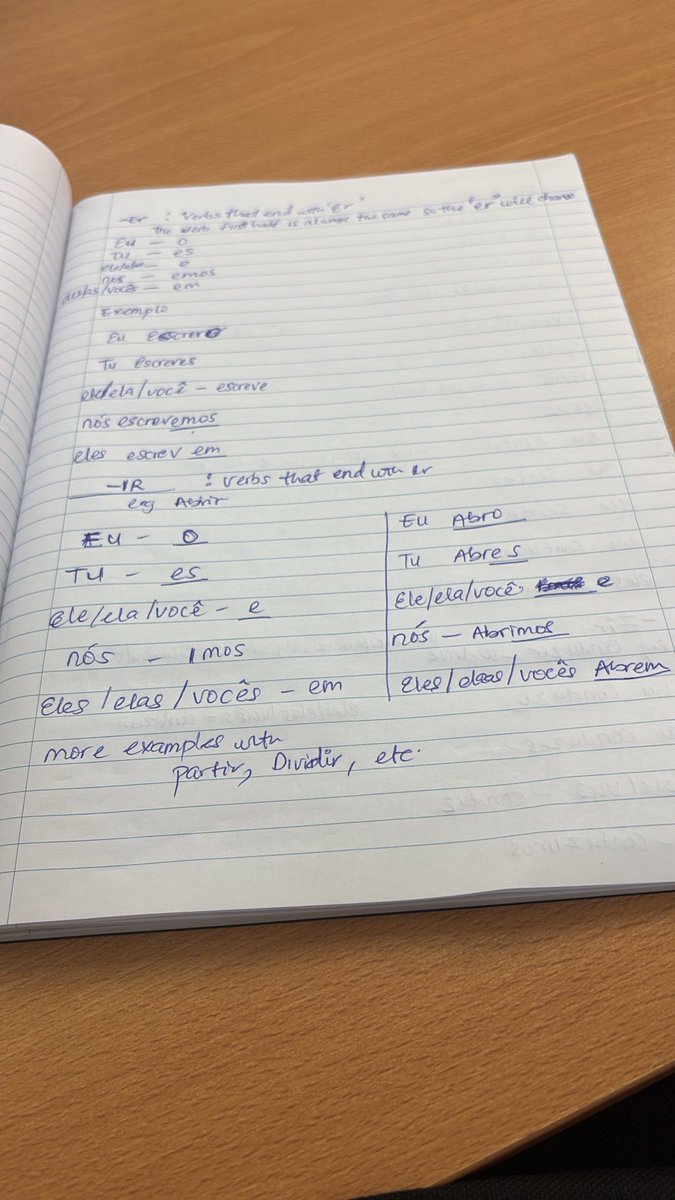 -Er : Verbs that end with 'Er'
The verb first half is always the same so the "er" will change
Eu - o
Tu - es
ele/ela - e
nós - emos
eles/as/você - em
Exemplo
Eu Escrevo
Tu Escreves
ele/ela/você - escreve
nós escrevemos
eles escrev em
-IR : verbs that end with ir
eng Abrir
Eu - o
Tu - es
Ele/ela/você - e
nós - imos
Eles/elas/vocês - em
Eu Abro
Tu Abres
Ele/ela/você e
nós - Abrimos
Eles/elaas/vocês Abrem
more examples with
partir, Dividir, etc.